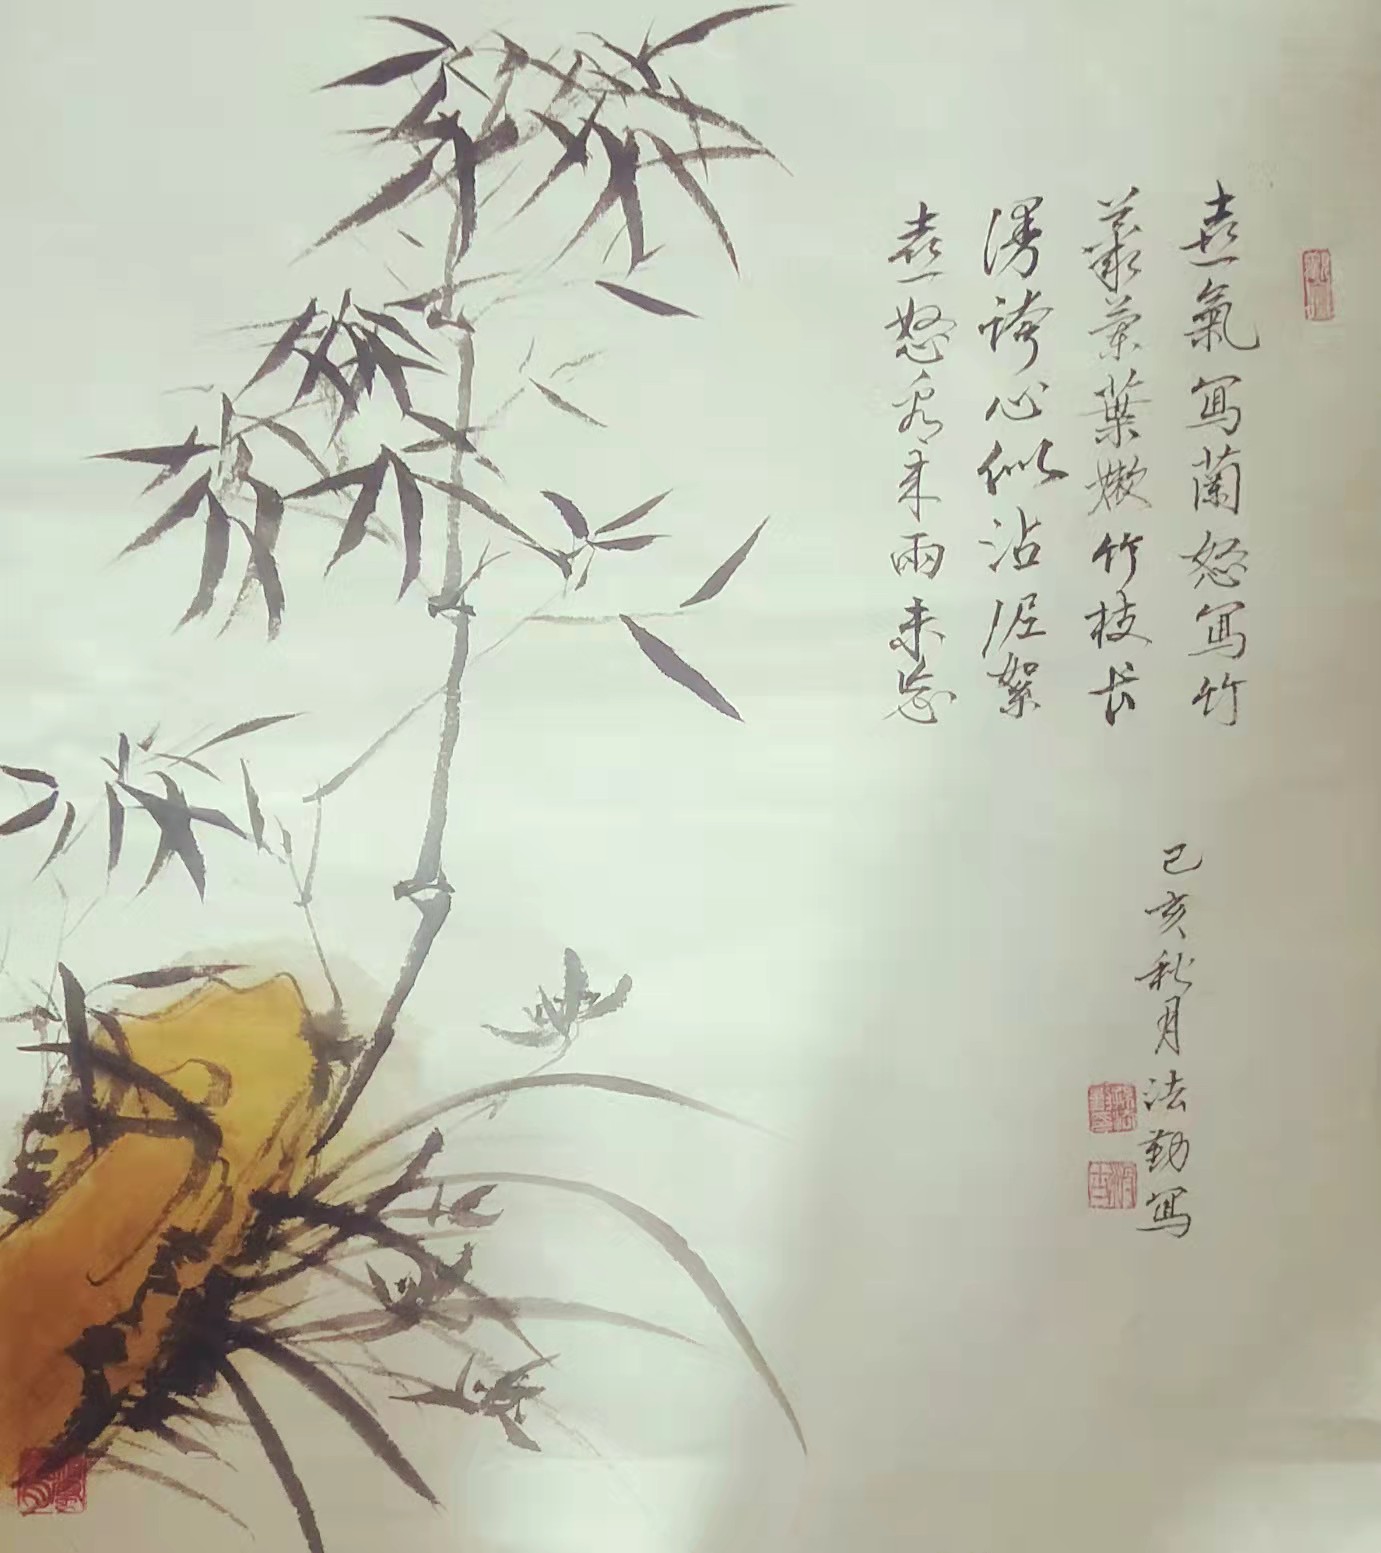 喜氣寫蘭怒寫竹
叢蘭葉嫩竹枝长
漫誇心似沾泥絮
喜怒看来兩未忘
己亥秋月法勤寫